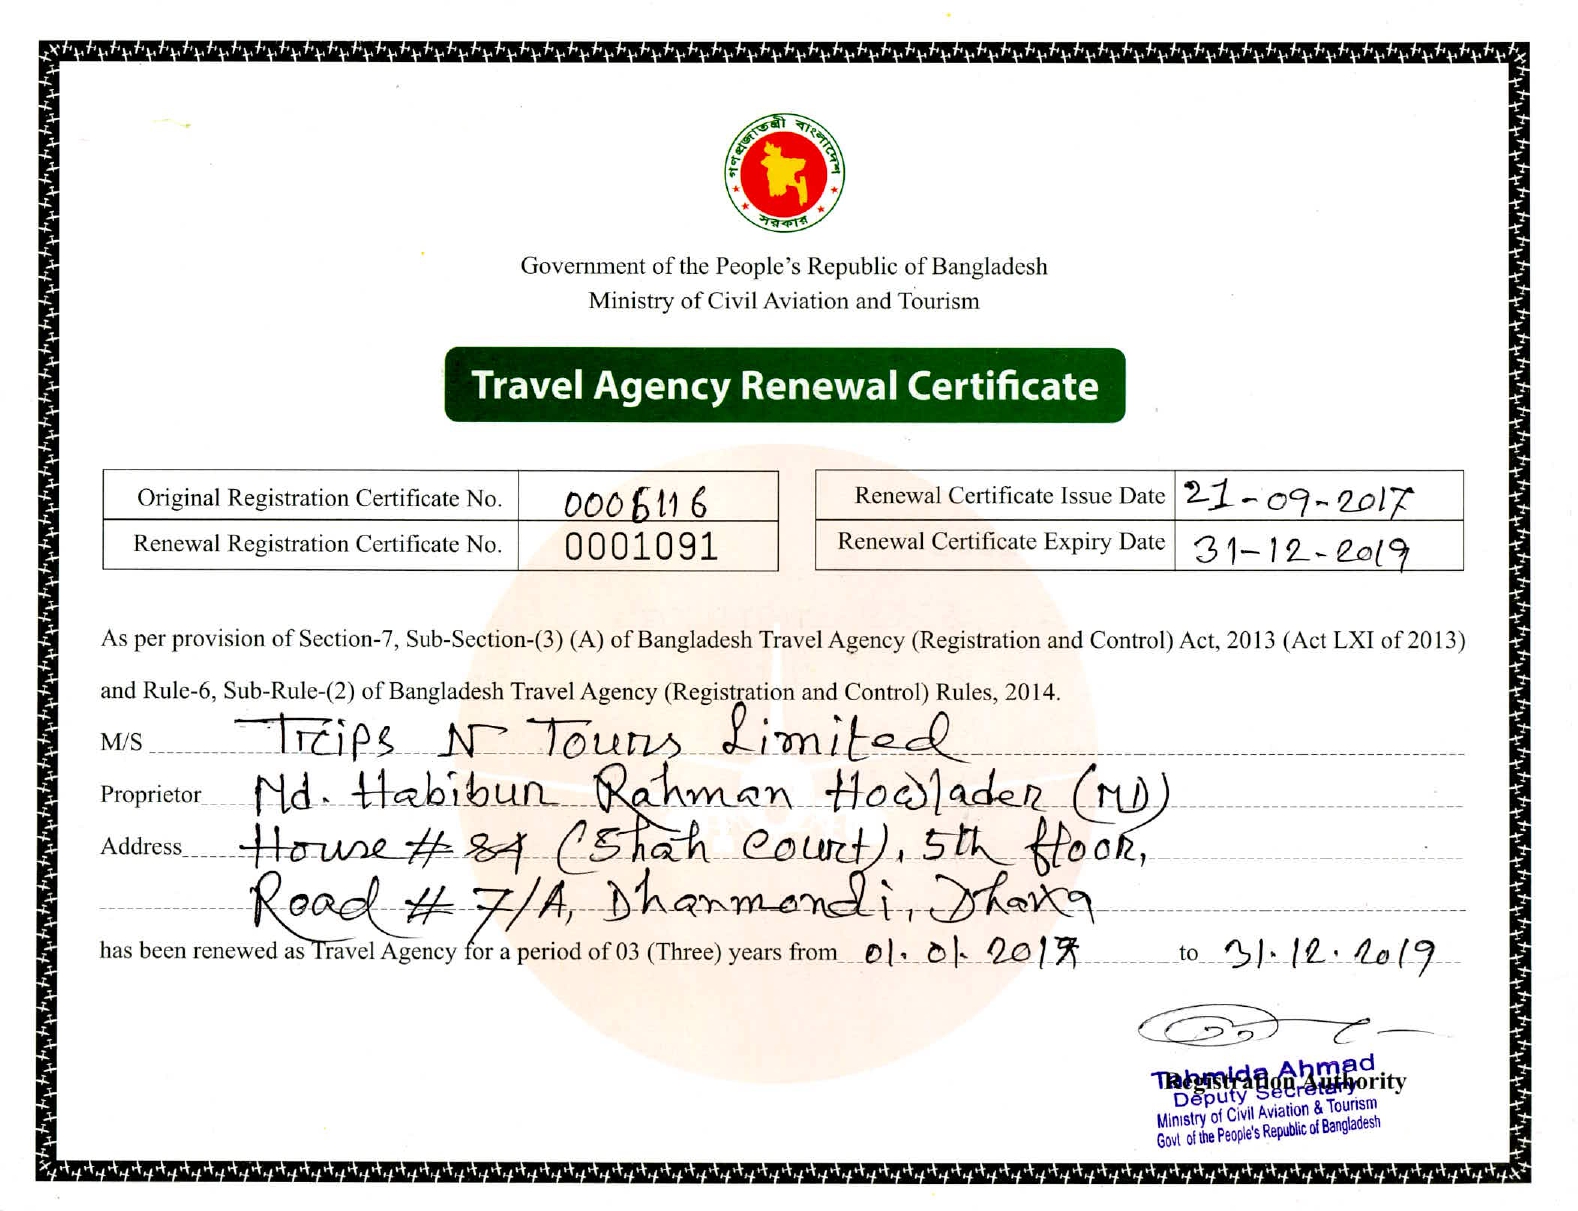 গণপ্রজাতন্ত্রী বাংলাদেশ
সরকার
Government of the People's Republic of Bangladesh
Ministry of Civil Aviation and Tourism
Travel Agency Renewal Certificate
Original Registration Certificate No. 0006116
Renewal Registration Certificate No. 0001091
Renewal Certificate Issue Date 21-09-2017
Renewal Certificate Expiry Date 31-12-2019
As per provision of Section-7, Sub-Section-(3) (A) of Bangladesh Travel Agency (Registration and Control) Act, 2013 (Act LXI of 2013)
and Rule-6, Sub-Rule-(2) of Bangladesh Travel Agency (Registration and Control) Rules, 2014.
M/S Trips N Tours Limited
Proprietor Md. Habibun Rahman Howlader (MD)
Address House # 84 (Shah Court), 5th floor,
Road # 7/A, Dhanmondi, Dhaka
has been renewed as Travel Agency for a period of 03 (Three) years from 01.01.2017 to 31.12.2019
Tahmida Ahmad
Registration Authority
Deputy Secretary
Ministry of Civil Aviation & Tourism
Govt of the People's Republic of Bangladesh